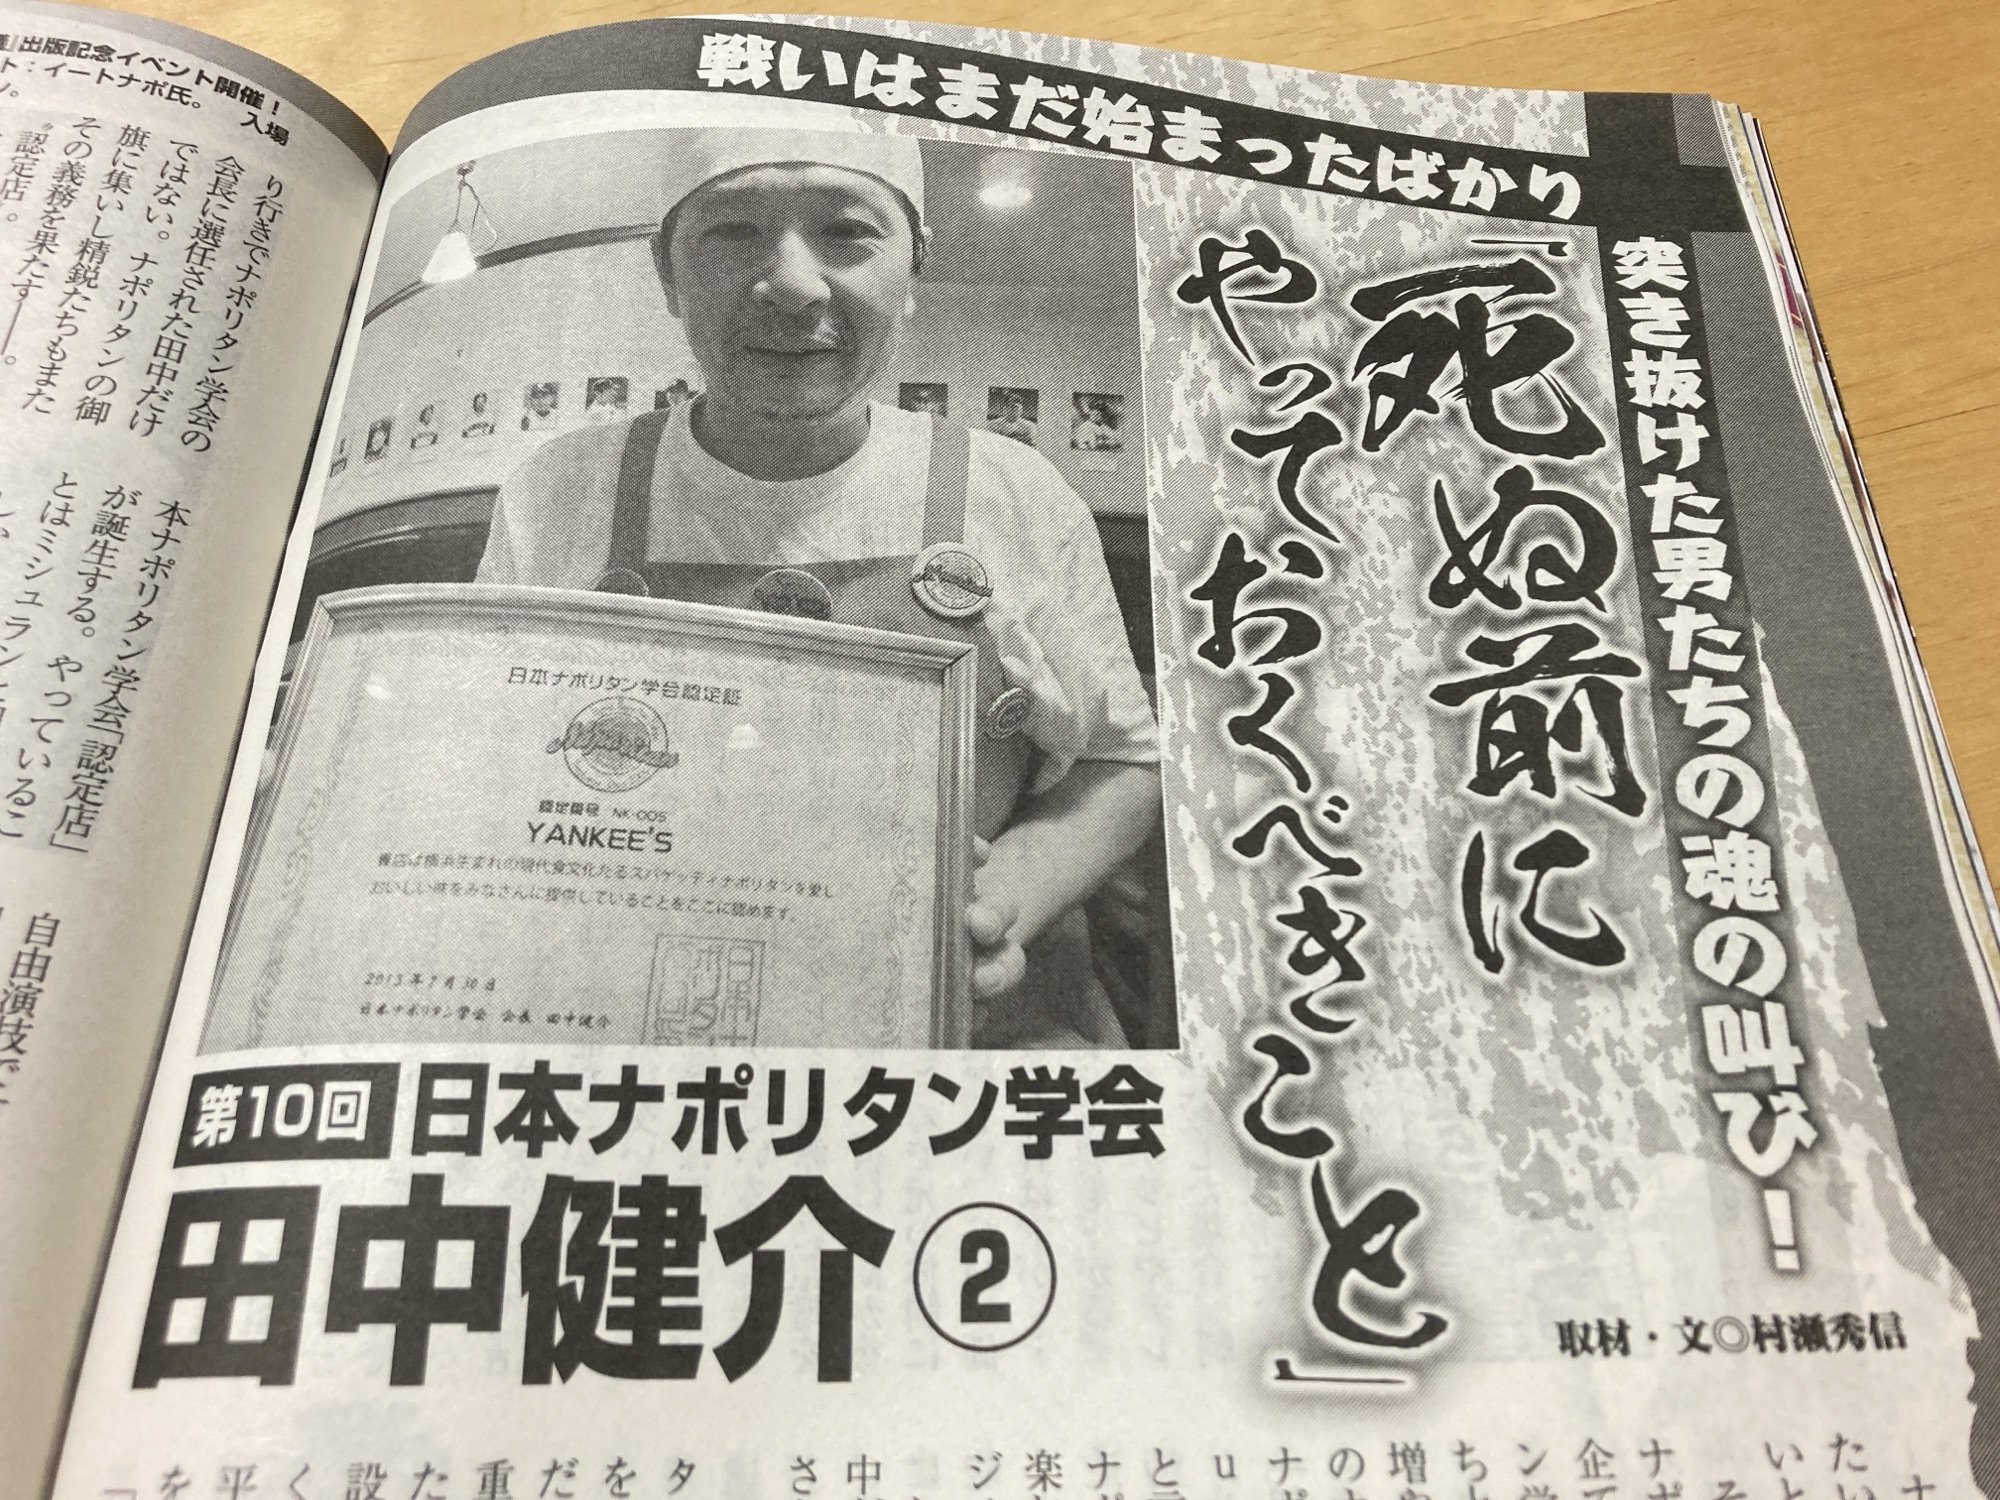 戦いはまだ始まったばかり
突き抜けた男たちの魂の叫び!
「死ぬ前に
やっておくべきこと」
取材・文◎村瀬秀信
日本ナポリタン学会認定証
認定番号 NK-005
YANKEE'S
貴店は横浜生まれの現代食文化たるスパゲッティナポリタンを愛し
おいしい味をみなさんに提供していることをここに認めます。
2013年7月30日
日本ナポリタン学会 会長 田中健介
第10回 日本ナポリタン学会
田中健介②
出版記念イベント開催!
ト:イートナポ氏。
入場
り行きでナポリタン学会の
会長に選任された田中だけ
ではない。ナポリタンの御
旗に集いし精鋭たちもまた
その義務を果たす――。
認定店。
本ナポリタン学会「認定店」
が誕生する。やっているこ
とはミシュランと
自由演技で